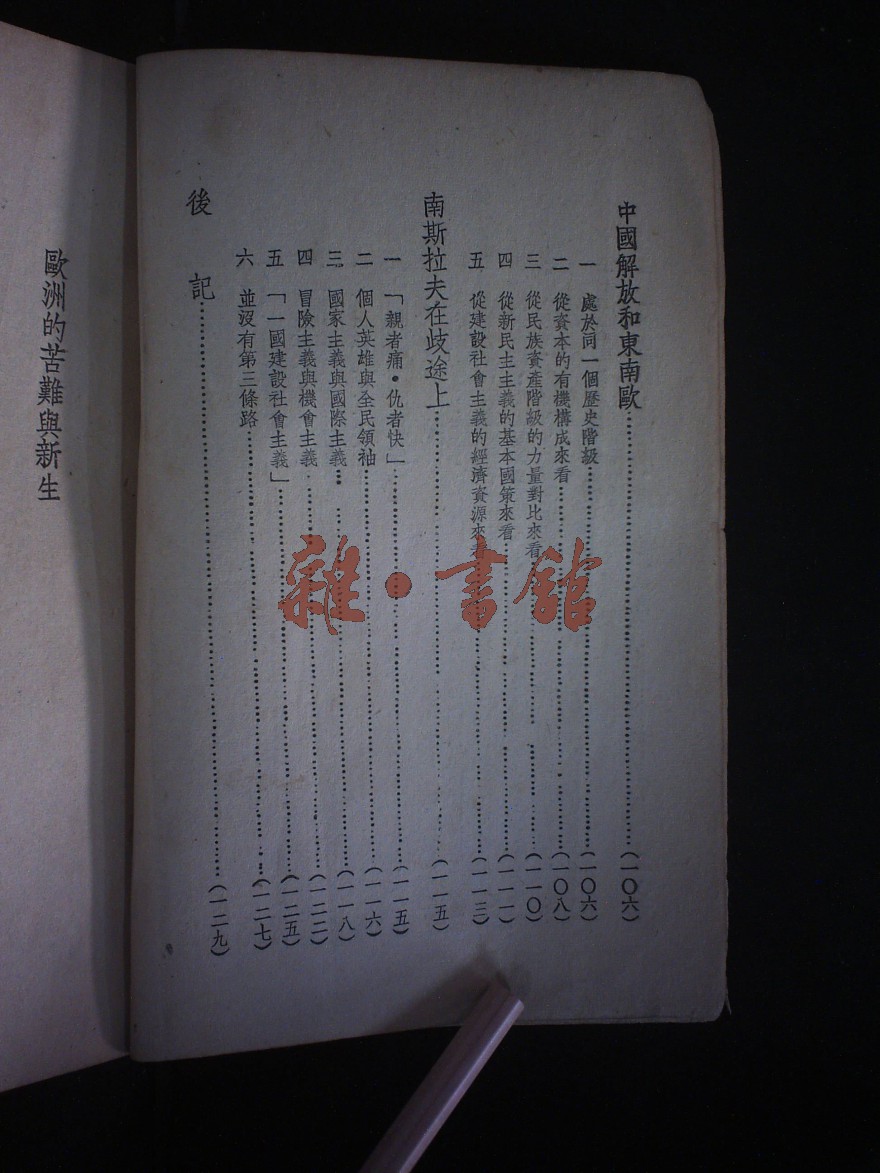 中國解放和東南歐……(一〇六)
一 處於同一個歷史階級……(一〇六)
二 從資本的有機構成來看……(一〇八)
三 從民族資產階級的力量對比來看……(一一〇)
四 從新民主主義的基本國策來看……(一一一)
五 從建設社會主義的經濟資源來看……(一一三)
南斯拉夫在歧途上……(一一五)
一 「親者痛・仇者快」……(一一五)
二 個人英雄與全民領袖……(一一六)
三 國家主義與國際主義……(一一八)
四 冒險主義與機會主義……(一二二)
五 「一國建設社會主義」……(一二五)
六 並沒有第三條路……(一二七)
後記……(一二九)
歐洲的苦難與新生
雜・書館